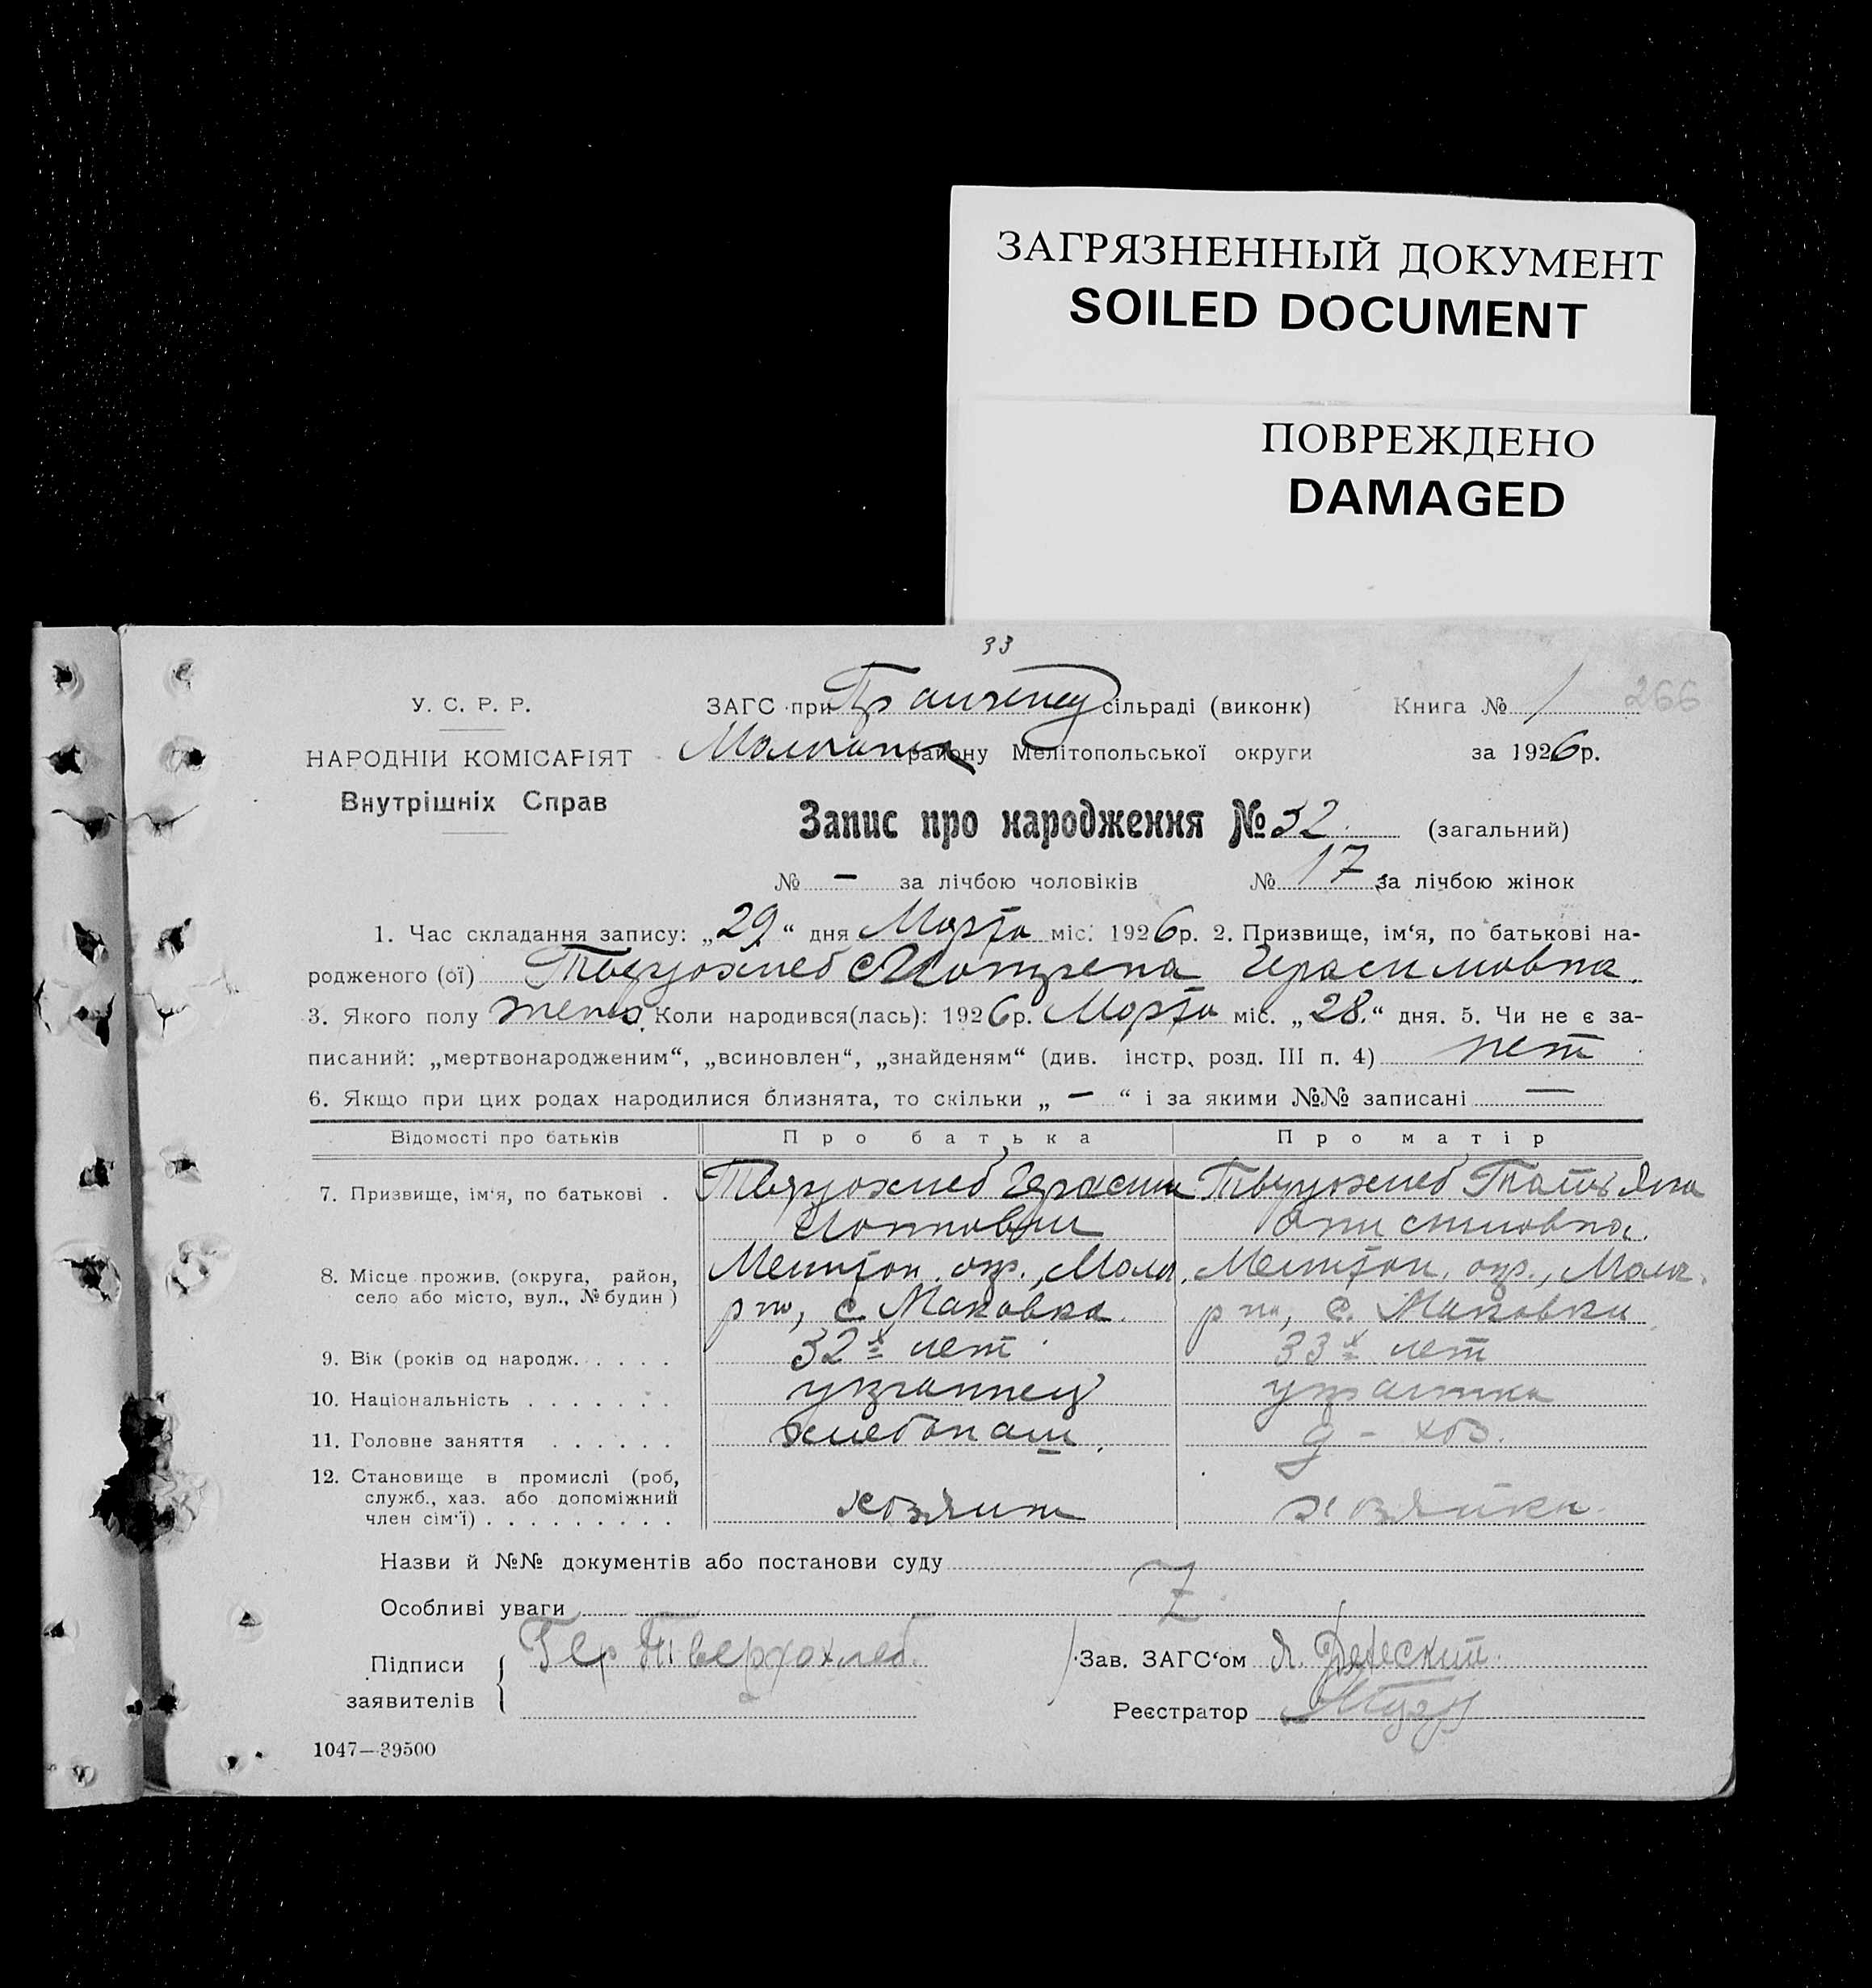 ЗАГРЯЗНЕННЫЙ ДОКУМЕНТ
SOILED DOCUMENT
ПОВРЕЖДЕНО
DAMAGED
33
266
У. С. Р. Р.
НАРОДНІЙ КОМІСАРІЯТ
Внутрішніх Справ
ЗАГС при сільраді (виконк)
району Мелітопольської округи
Книга № 1
за 1926 р.
Запис про народження № 32 (загальний)
№ — за лічбою чоловіків № 17 за лічбою жінок
1. Час складання запису: „29“ дня Марта міс. 1926 р. 2. Призвище, ім‘я, по батькові на-
родженого (ої) Твердохлеб Герасимовна
3. Якого полу женск. Коли народився(лась): 1926 р. Марта міс. „28.“ дня. 5. Чи не є за-
писаний: „мертвонародженим“, „всиновлен“, „знайденям“ (див. інстр, розд. III п. 4) нет
6. Якщо при цих родах народилися близнята, то скільки „ — “ і за якими №№ записані —
Відомості про батьків Про батька Про матір
7. Призвище, ім‘я, по батькові . Твердохлеб Герасим Твердохлеб Татьяна
8. Місце прожив. (округа, район, Мелитоп. окр., Молоч. Мелитоп. окр., Молоч.
село або місто, вул., № будин ) р-на, с. Маковка. р-на, с. Маковка
9. Вік (років од народж. . . . . 32х лет 33х лет
10. Національність . . . . . . . украинец украинка
11. Головне заняття . . . . . . хлебопаш. д-хоз.
12. Становище в промислі (роб,
служб., хаз. або допоміжний
член сім‘ї) . . . . . . . . . хозяин хозяйка
Назви й №№ документів або постанови суду
Особливі уваги
Підписи
заявителів
Гер Твердохлеб.
Зав. ЗАГС‘ом
Реєстратор
1047—39500